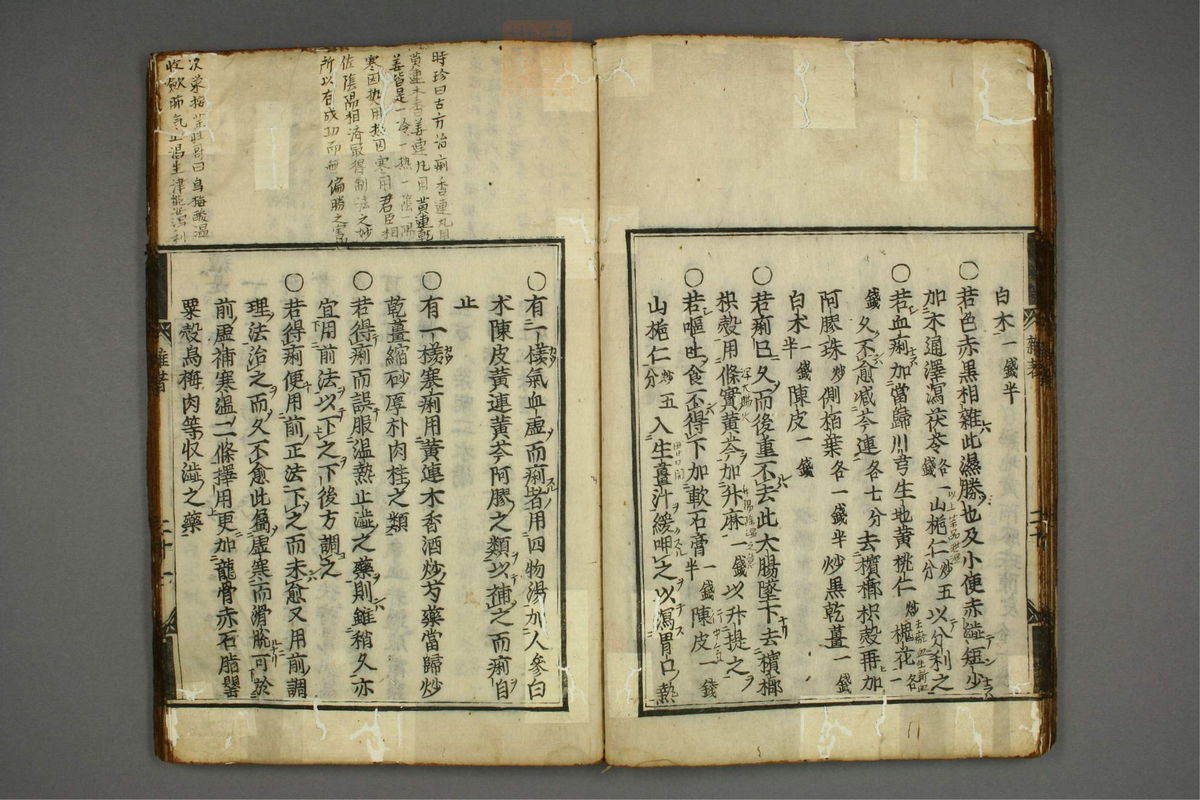 白朮一錢半
○若色赤黑相雜此濕勝也及小便赤澁短少
加木通澤瀉茯苓各一錢山梔仁炒五分以分利之
○若血痢加當歸川芎生地黃桃仁炒槐花各一
錢久不愈減芩連各七分去檳榔枳殼再加
阿膠珠炒側栢葉各一錢半炒黑乾薑一錢
白朮一錢半陳皮一錢
○若痢已久而後重不去此大腸墜下去檳榔
枳殼用條實黃芩加升麻一錢以升提之
○若嘔吐食不得下加軟石膏一錢半陳皮一錢
山梔仁炒五分入生薑汁緩呷之以瀉胃口熱
○有一樣氣血虛而痢者用四物湯加人參白
朮陳皮黃連黃芩阿膠之類以補之而痢自
止
○有一樣寒痢用黃連木香酒炒芍藥當歸炒
乾薑縮砂厚朴肉桂之類
○若得痢而誤服溫熱止澁之藥則雖稍久亦
宜用前法以下之下後方調之
○若得痢便用前正法下之而未愈又用前調
理法治之而久不愈此屬虛寒而滑脫可於
前虛補寒溫二條擇用更加龍骨赤石脂罌
粟殼烏梅肉等收澁之藥
雜著
二十一
時珍曰古方治痢香連丸用
黃連木香薑連丸用黃連乾
姜皆是一冷一熱一陰一陽
寒因熱用熱因寒用君臣相
佐陰陽相濟最得制法之妙
所以有成功而無偏勝之害
曰烏梅酸溫
收斂肺氣止渴生津能瀉利